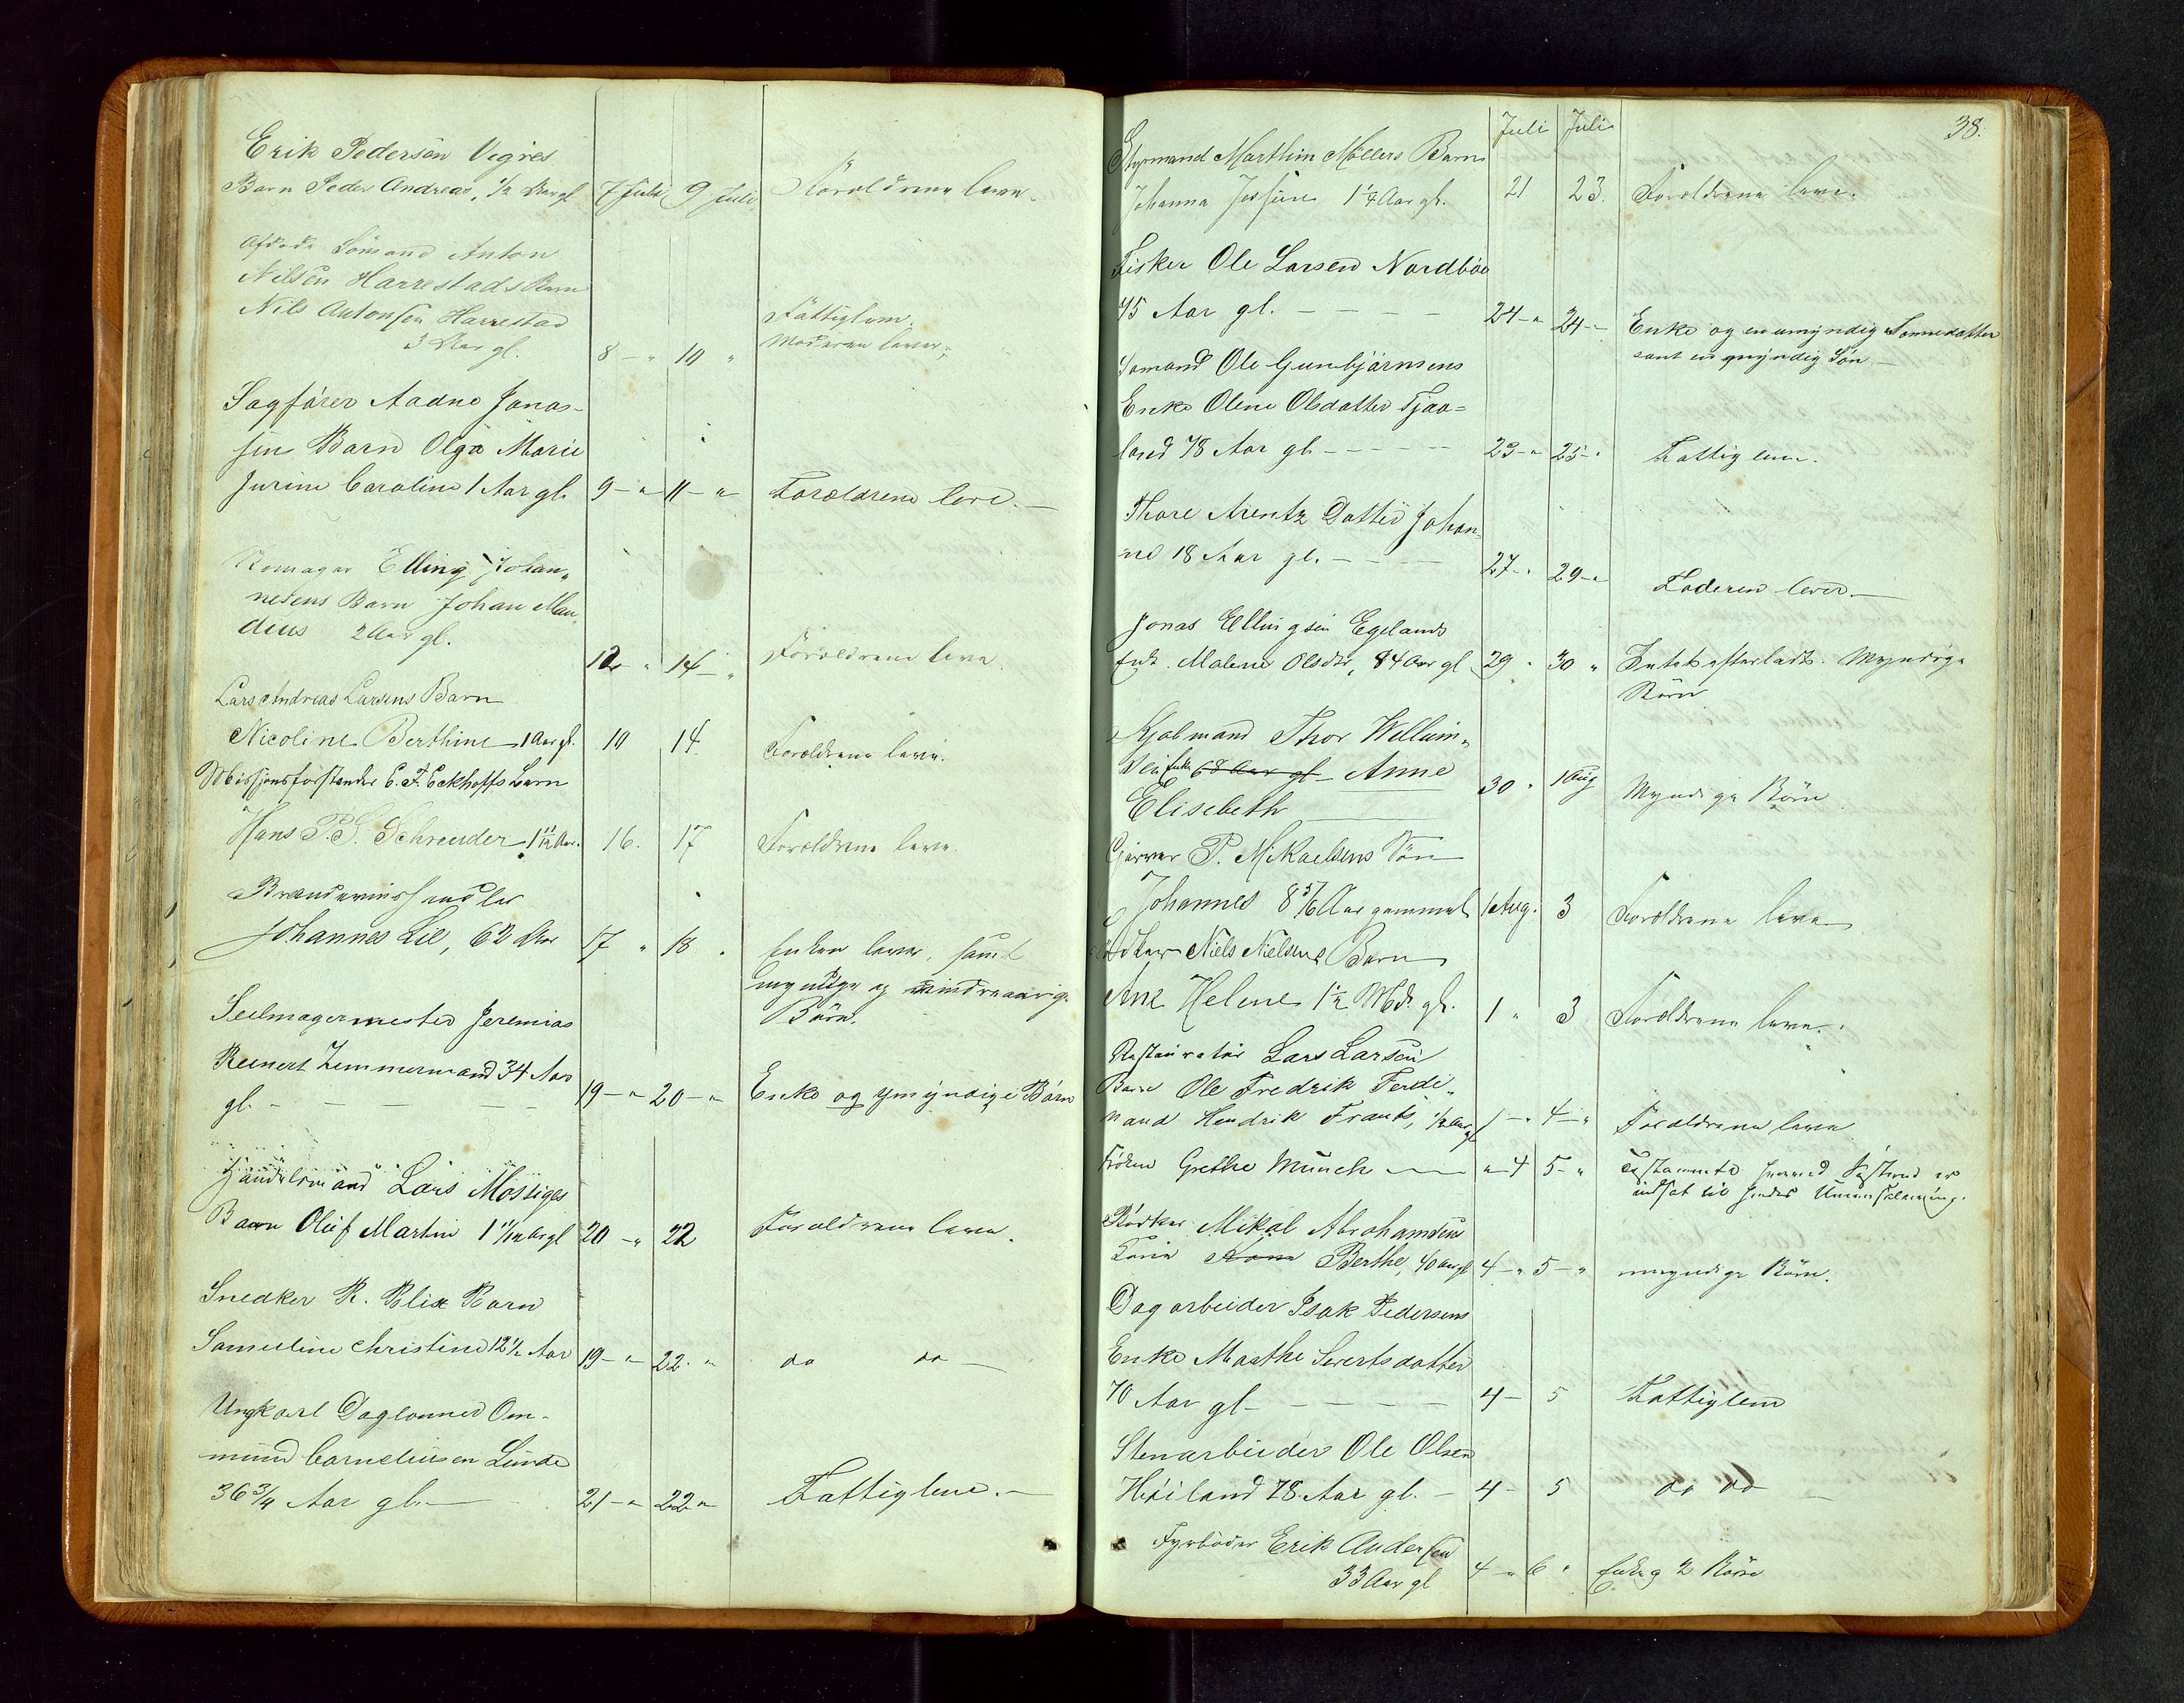 Erik Pedersen Vegnes
Barn Peder Andreas, 1/2 Aar gl 7 Juli 9 Juli Forældrene leve.
Afdøde Sömand Anton
Nilsen Harrestads Barn
Nils Antonsen Harrestad Fattiglem.
3 Aar gl. 8 - " 10 " Moderen lever.
Sagförer Aadne Jonas-
sen Barn Olga Marie
Jurine Caroline 1 Aar gl. 9 - " 11 - " Forældrene leve. -
Elling Johan-
nesens Barn Johan
2 Aar gl. 12 - " 14 - " Forældrene leve.
Lars Andreas Larsens Barn
Nicoline Berthine 1 Aar gl. 10 14 Forældrene leve.
Missjonsforstander C. F. Eckhoffs Barn
Hans P. S. Schreuder 1 11/12 Aar. 16. 17 Forældrene leve.
Brændevinshandler
Johannes Lie, 62 Aar 17 " 18 . Enken lever, samt
myndige og mindreaarige
Börn.
Seilmagermester Jeremias
Reinert Zimmermand 34 Aar
gl. - - - - 19 - " 20 - " Enke og umyndige Börn
Handelsmand Lars Mossiges
Barn Oluf Martin 1 11/12 Aar gl 20 - " 22 Forældrene leve.
Snedker R. Blix Barn
Sameline Christine 12 1/2 Aar 19 - " 22 - " do do -
Ungkarl Daglonner Om-
mund Corneliusen Lunde
36 3/4 Aar gl. - 21 - " 22 - " Fattiglem. -
38.
Juli Juli
Styrmand Marthin Möllers Barn
Johanna 1 1/4 Aar gl. 21 23. Forældrene leve.
Fisker Ole Larsen Nordböe
75 Aar gl. - - - - 24 - " 24 - " Enke og en umyndig Sonnedatter
samt en myndig Sön -
Somand Ole Gunbjörnsens
Enke Olene Olsdatter Tjaa-
land 78 Aar gl. - - - - 23 - " 25 - " Fattiglem.
Thore Arentz Datter Johan-
ne 18 Aar gl. - - - 27 - " 29 - " Faderen lever. -
Jonas Ellingsen Egelands
Enk. Malene Olsdtr, 84 Aar gl 29 " 30 " Intet efterladt. Myndige
Börn
Kjøbmand Thor Wellum-
sen Enke 68 Aar gl - Anne 30 " 1 Aug Myndige Börn
Elisebeth
Garver P. Mikaelsens Sön
Johannes 8 5/6 Aar gammel 1 Aug. 3 Forældrene leve
Niels Nielsens Barn
Ane Helene 1 1/2 Mdr. gl. 1 " 3 Forældrene leve.
Restauratör Lars Larsen
Barn Ole Fredrik Ferdi-
nand Hendrik Frants, 1/2 Aar gl 1 - " 4 - " Forældrene leve
Fröken Grethe Münch " 4 5 - " Testamente hvorved Søsteren er
indsat til hendes Universalarving.
Bödker Mikal Abrahamsen
Kone Berthe, 40 Aar gl 4 - " 5 - " umyndige Börn.
Dagarbeider Isak Pedersens
Enke Marthe Sivertsdatter
70 Aar gl - - - - - 4 - 5 Fattiglem
Stenarbeider Ole Olsen
Höiland 78 Aar gl. - 4 - 5 do do -
Fyrböder Erik Andersen
33 Aar gl 4 - " 6 " Enke og 2 Börn